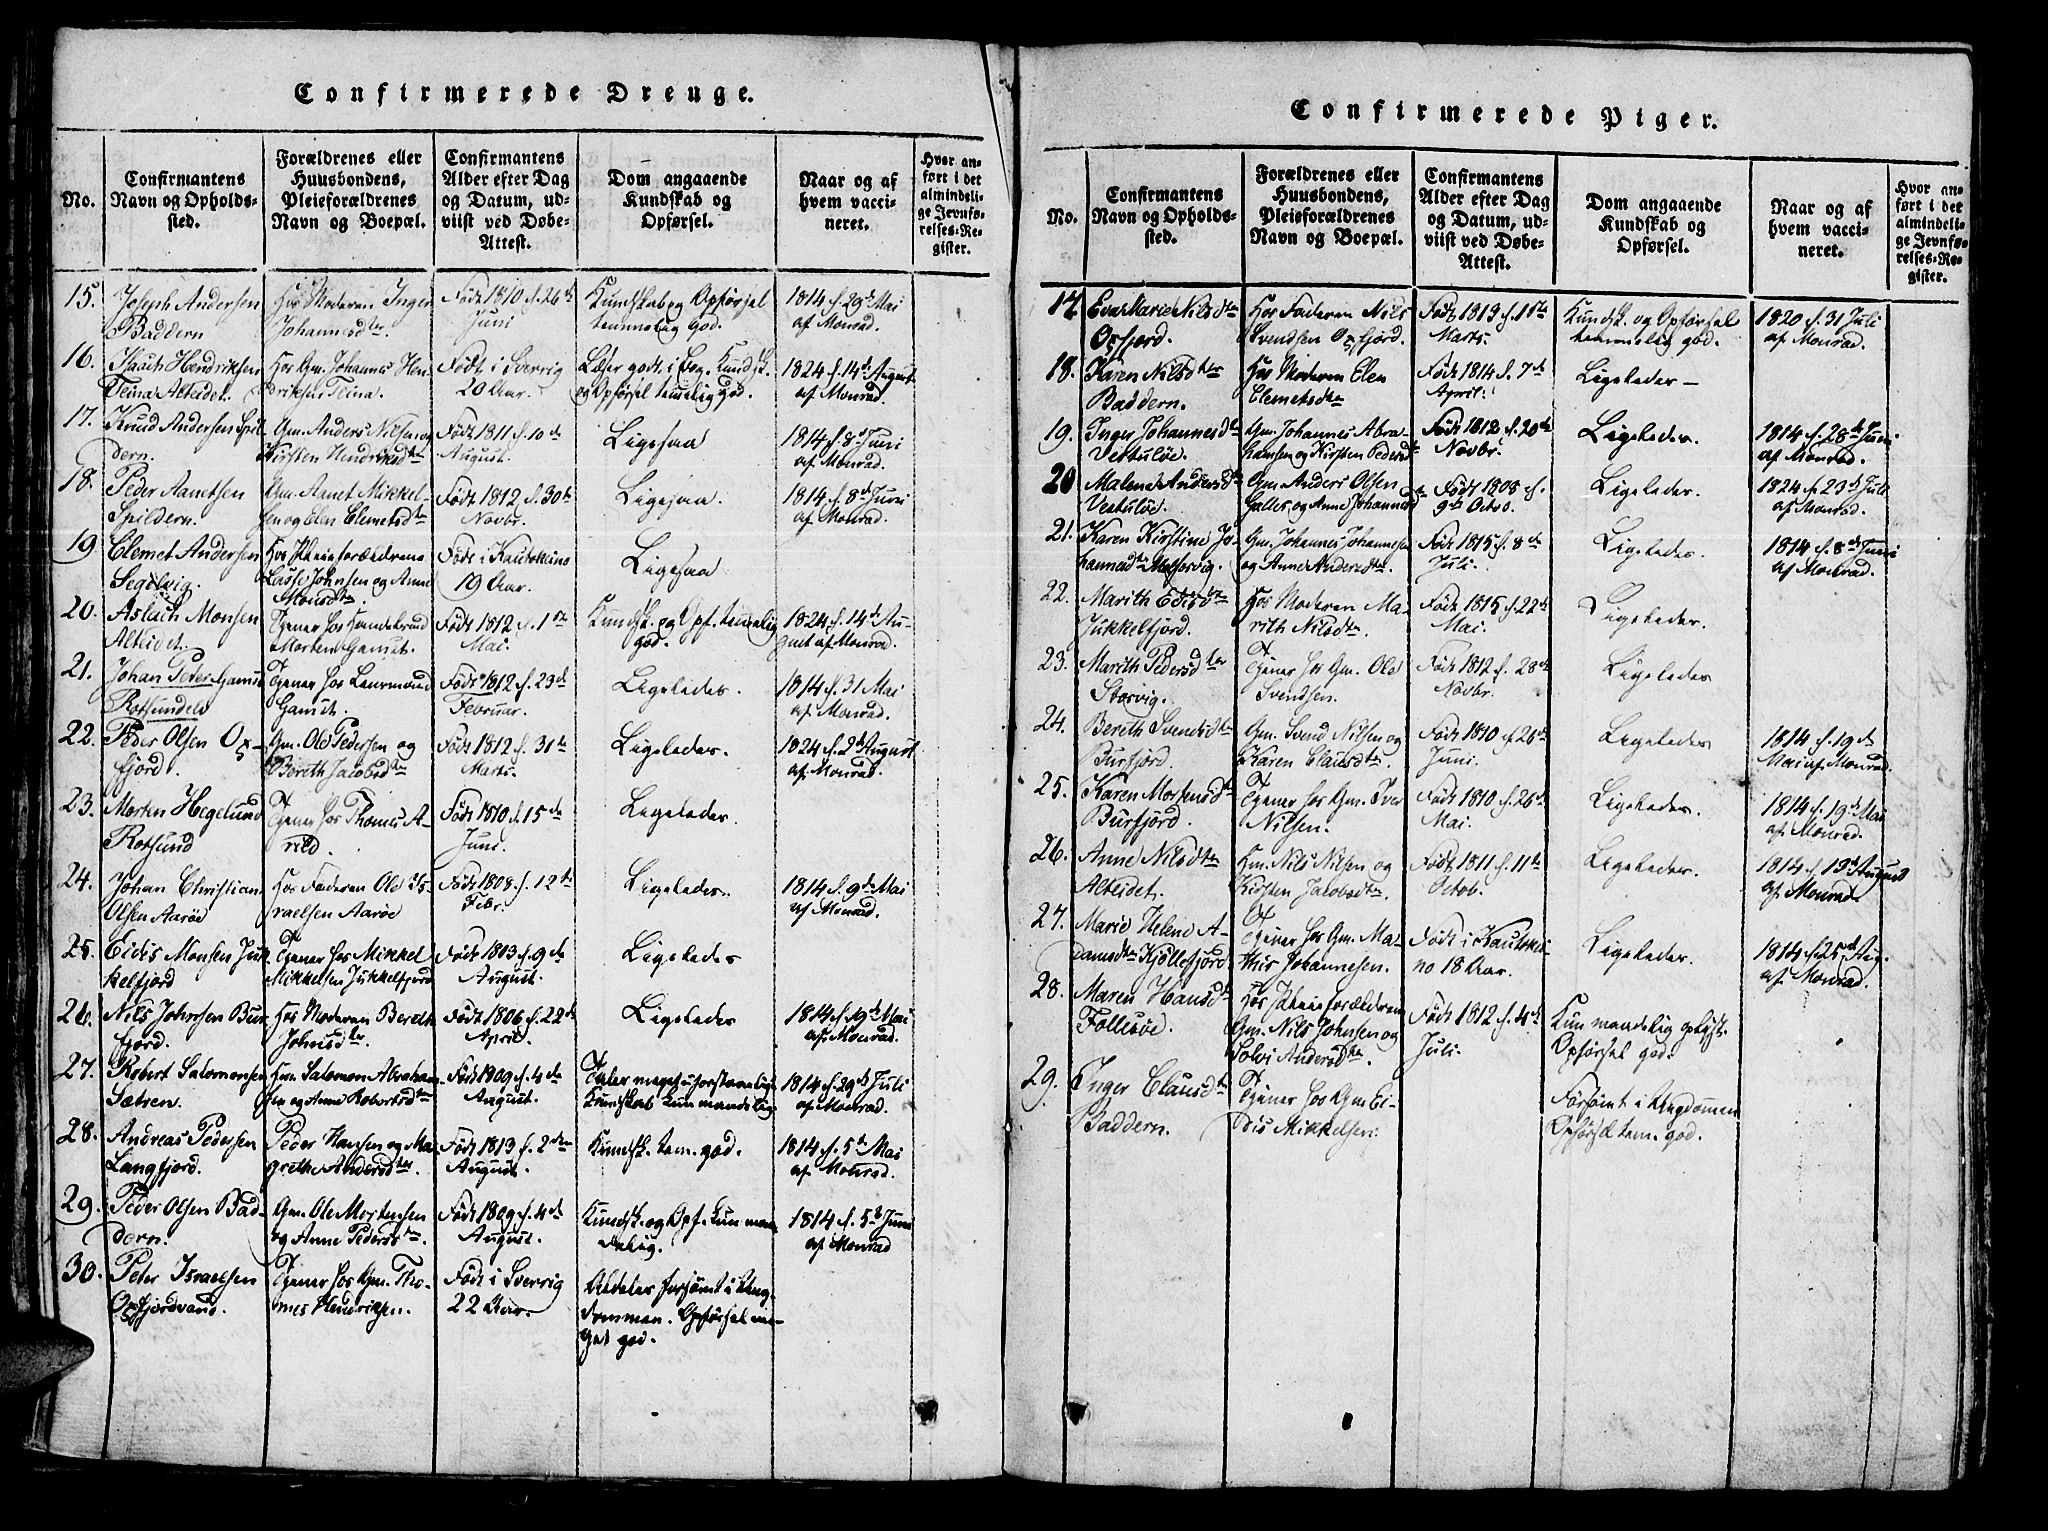 Confirmerede Drenge.
No.
Confirmantens
Navn og Opholds-
sted.
Forældrenes eller
Huusbondens,
Pleieforældrenes
Navn og Boepæl.
Confirmantens
Alder efter Dag
og Datum, ud-
viist ved Døbe-
Attest.
Dom angaaende
Kundskab og
Opførsel.
Naar og af
hvem vacci-
neret.
Hvor an-
ført i det
almindeli-
ge Jevnfø-
relses-Re-
gister.
15. Joseph Andersen
Baddern
Hos Moderen Inger
Johannesdter.
Født 1810 d. 26de
Juni
Kundskab og Opførsel
temmelig god.
1814 d. 29de Mai
af Monrad.
16. Isach Hendriksen
Alteidet.
Hos Gm. Johannes Hen-
driksen
Født i Sverrig
20 Aar.
Læser godt i Bog. Kundsk.
og Opførsel temelig god.
1824 d. 14de August
af Monrad.
17. Knud Andersen Spil-
dern.
Gm. Anders Nilsen og
Kirsten Hendriksdtr
Født 1811 d. 10de
August.
Ligesaa
1814 d. 8de Juni
af Monrad.
18. Peder Aanetsen
Spildern.
Gm. Aanet Mikkel-
sen og Elen Clemetsdtr
Født 1812 d. 30te
Novbr.
Ligesaa.
1814 d. 8de Juni
af Monrad.
19 Clemet Andersen
Segelvig.
Hos Pleieforældrene
Lasse Johnsen og Anne
Monsdtr
Født i Kautokeino
19 Aar.
Ligesaa
20. Aslach Monsen
Alteidet.
Tjener hos Handelsmd
Morten Gamst.
Født 1812 d. 1ste
Mai.
Kundsk. og Opf. temelig
god.
1824 d. 14de Au-
gust af Monrad.
21. Johan Peder Gamst
Rotsundels
Tjener hos Lænsmand
Gamst.
Født 1812 d. 23de
Februar.
Ligeledes.
1814 d. 31 Mai
af Monrad.
22. Peder Olsen Ox-
fjord.
Gm. Ole Pedersen og
Bereth Jacobsdtr
Født 1812 d. 31te
Marts.
Ligeledes.
1824 d. 2de August
af Monrad.
23. Morten Hegelund
Rotsund
Tjener hos Thomes A-
rild.
Født 1810 d. 15de
Juni.
Ligeledes.
24. Johan Christian
Olsen Aarøe
Hos Faderen Ole Is-
raelsen Aarøe
Født 1808. d. 12te
Febr.
Ligeledes.
1814 d. 9de Mai
af Monrad.
25. Eidis Monsen Juk-
kelfjord
Tjener hos Mikkel
Mikkelsen Jukkelfjord
Født 1803 d. 9de
August.
Ligeledes
26. Nils Johnsen Bur-
fjord.
Hos Moderen Bereth
Johnsdtr.
Født 1806 d. 22de
April.
Ligeledes
1814 d. 19de Mai
af Monrad.
27. Robert Salomonsen
Sætren.
Gm. Salomon Abraham-
sen og Anne Robertsdtr
Født 1809 d. 4de
August.
Taler meget uforstaaelig.
Kundskab kun maadelig.
1814 d. 29de Juli
af Monrad.
28. Andreas Pedersen
Langfjord.
Peder Hansen og Ma-
greth Andersdter.
Født 1813 d. 2den
August.
Kundsk. tem. god.
1814 d. 5te Mai
af Monrad.
29. Peder Olsen Bad-
dern.
Gm. Ole Mortensen
og Anne Pedersdtr.
Født 1809 d. 4de
August.
Kundsk. og Opf. kun maa-
delig.
1814 d. 5te Juni
af Monrad
30. Peter Israelsen
Oxfjordvand.
Tjener hos Gm. Tho-
mes Hendriksen.
Født i Sverrig
22 Aar.
Aldeles forsømt i Ung-
dommen. Opførsel me-
get god.
Confirmerede Piger.
No.
Confirmantens
Navn og Opholds-
sted.
Forældrenes eller
Huusbondens,
Pleieforældrenes
Navn og Boepæl.
Confirmantens
Alder efter Dag
og Datum, ud-
viist ved Døbe-
Attest.
Dom angaaende
Kundskab og
Opførsel.
Naar og af
hvem vacci-
neret.
Hvor an-
ført i det
almindeli-
ge Jevnfø-
relses-Re-
gister.
17. Eva Marie Nilsdtr
Oxfjord.
Hos Faderen Nils
Svendsen Oxfjord.
Født 1813 d. 1ste
Marts.
Kundsk. og Opførsel
temmelig god.
1820 d. 31 Juli
af Monrad.
18. Karen Nilsdter
Baddern.
Hos Moderen Elen
Clemetsdtr
Født 1814 d. 7de
April.
Ligeledes –
19. Inger Johannesdtr
Vestuløe.
Gm. Johannes Abra-
hamsen og Kirsten Pedersdtr
Født 1812 d. 20de
Novbr.
Ligeledes.
1814 d. 28de Juni
af Monrad.
20 Malene Andersdtr
Vestuløe.
Gm. Anders Olsen
Galles og Anne Johannesdtr
Født 1808 d.
9de Octob.
Ligeledes.
1824 d. 23de Juli
af Monrad.
21. Karen Kirstine Jo-
hannesdtr
Gm. Johannes Johannesen
og Anne Andersdtr.
Født 1815 d. 8de
Juli.
Ligeledes.
1814 d. 8de Juni
af Monrad.
22. Marith Edisdtr
Jukkelfjord.
Hos Moderen Ma-
rith Nilsdtr
Født 1815 d. 22de
Mai.
Ligeledes.
23. Marith Pedersdter
Storvig.
Tjener hos Gm. Ole
Svendsen.
Født 1812 d. 28de
Novbr.
Ligeledes
24. Bereth Svendsdtr
Burfjord.
Gm. Svend Nilsen og
Karen Clausdtr.
Født 1810 d. 20de
Juni.
Ligeledes
1814 d. 19de
Mai af Monrad.
25. Karen Mortensdtr
Burfjord.
Tjener hos Gm. Iver
Nilsen.
Født 1810 d. 26de
Mai.
Ligeledes.
1814 d. 19de Mai
af Monrad.
26. Anne Nilsdtr
Alteidet.
Gm. Nils Nilsen og
Kirsten Jacobsdtr.
Født 1811 d. 11te
Octob.
Ligeledes.
1814 d. 13de August
af Monrad.
27. Marie Helene A-
damsdtr Kjøllefjord
Tjener hos Gm. Ma-
this Johannesen.
Født i Kautokei-
no 18 Aar.
Ligeledes.
1814 d. 25de Aug.
af Monrad.
28. Maren Hansdtr
Follesøe.
Hos Pleieforældrene
Gm. Nils Johnsen og
Solvi Andersdtr.
Født 1812 d. 4de
Juli.
Kun maadelig oplyst.
Opførsel god.
29. Inger Clausdtr
Baddern.
Tjener hos Gm. Ei-
dis Mikkelsen.
Forsømt i Ungdomen
Opførsel tem. god.